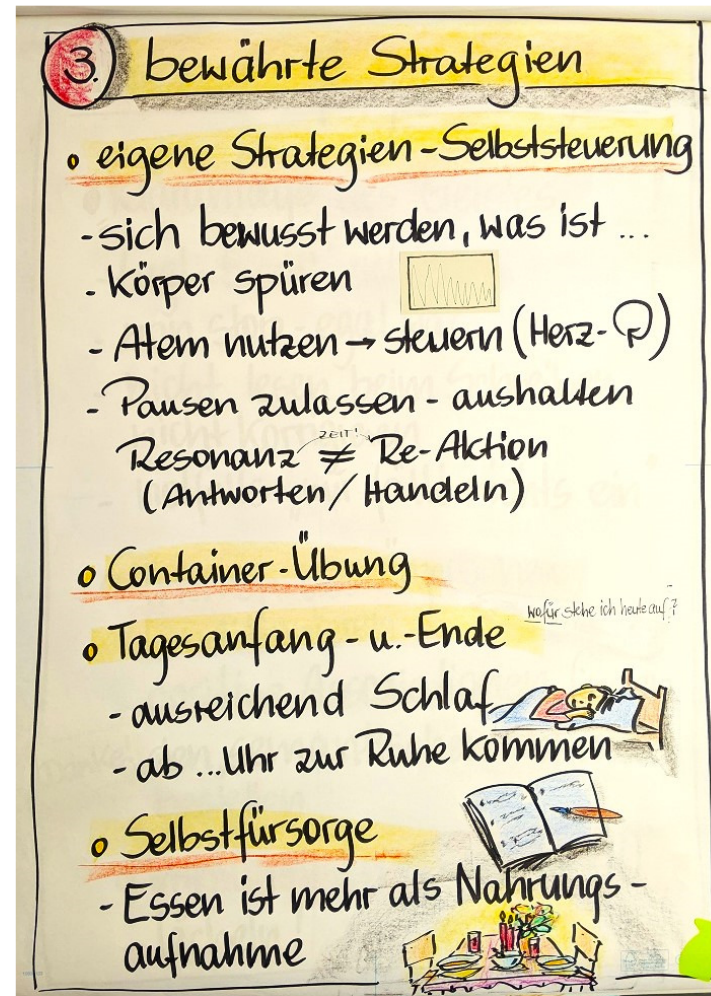 3. bewährte Strategien
• eigene Strategien - Selbststeuerung
- sich bewusst werden, was ist ...
- Körper spüren
- Atem nutzen → steuern (Herz-
- Pausen zulassen - aushalten
ZEIT!
Resonanz ≠ Re-Aktion
(Antworten / Handeln)
• Container-Übung
wofür stehe ich heute auf?
• Tagesanfang - u.-Ende
- ausreichend Schlaf
- ab ... Uhr zur Ruhe kommen
• Selbstfürsorge
- Essen ist mehr als Nahrungs-
aufnahme